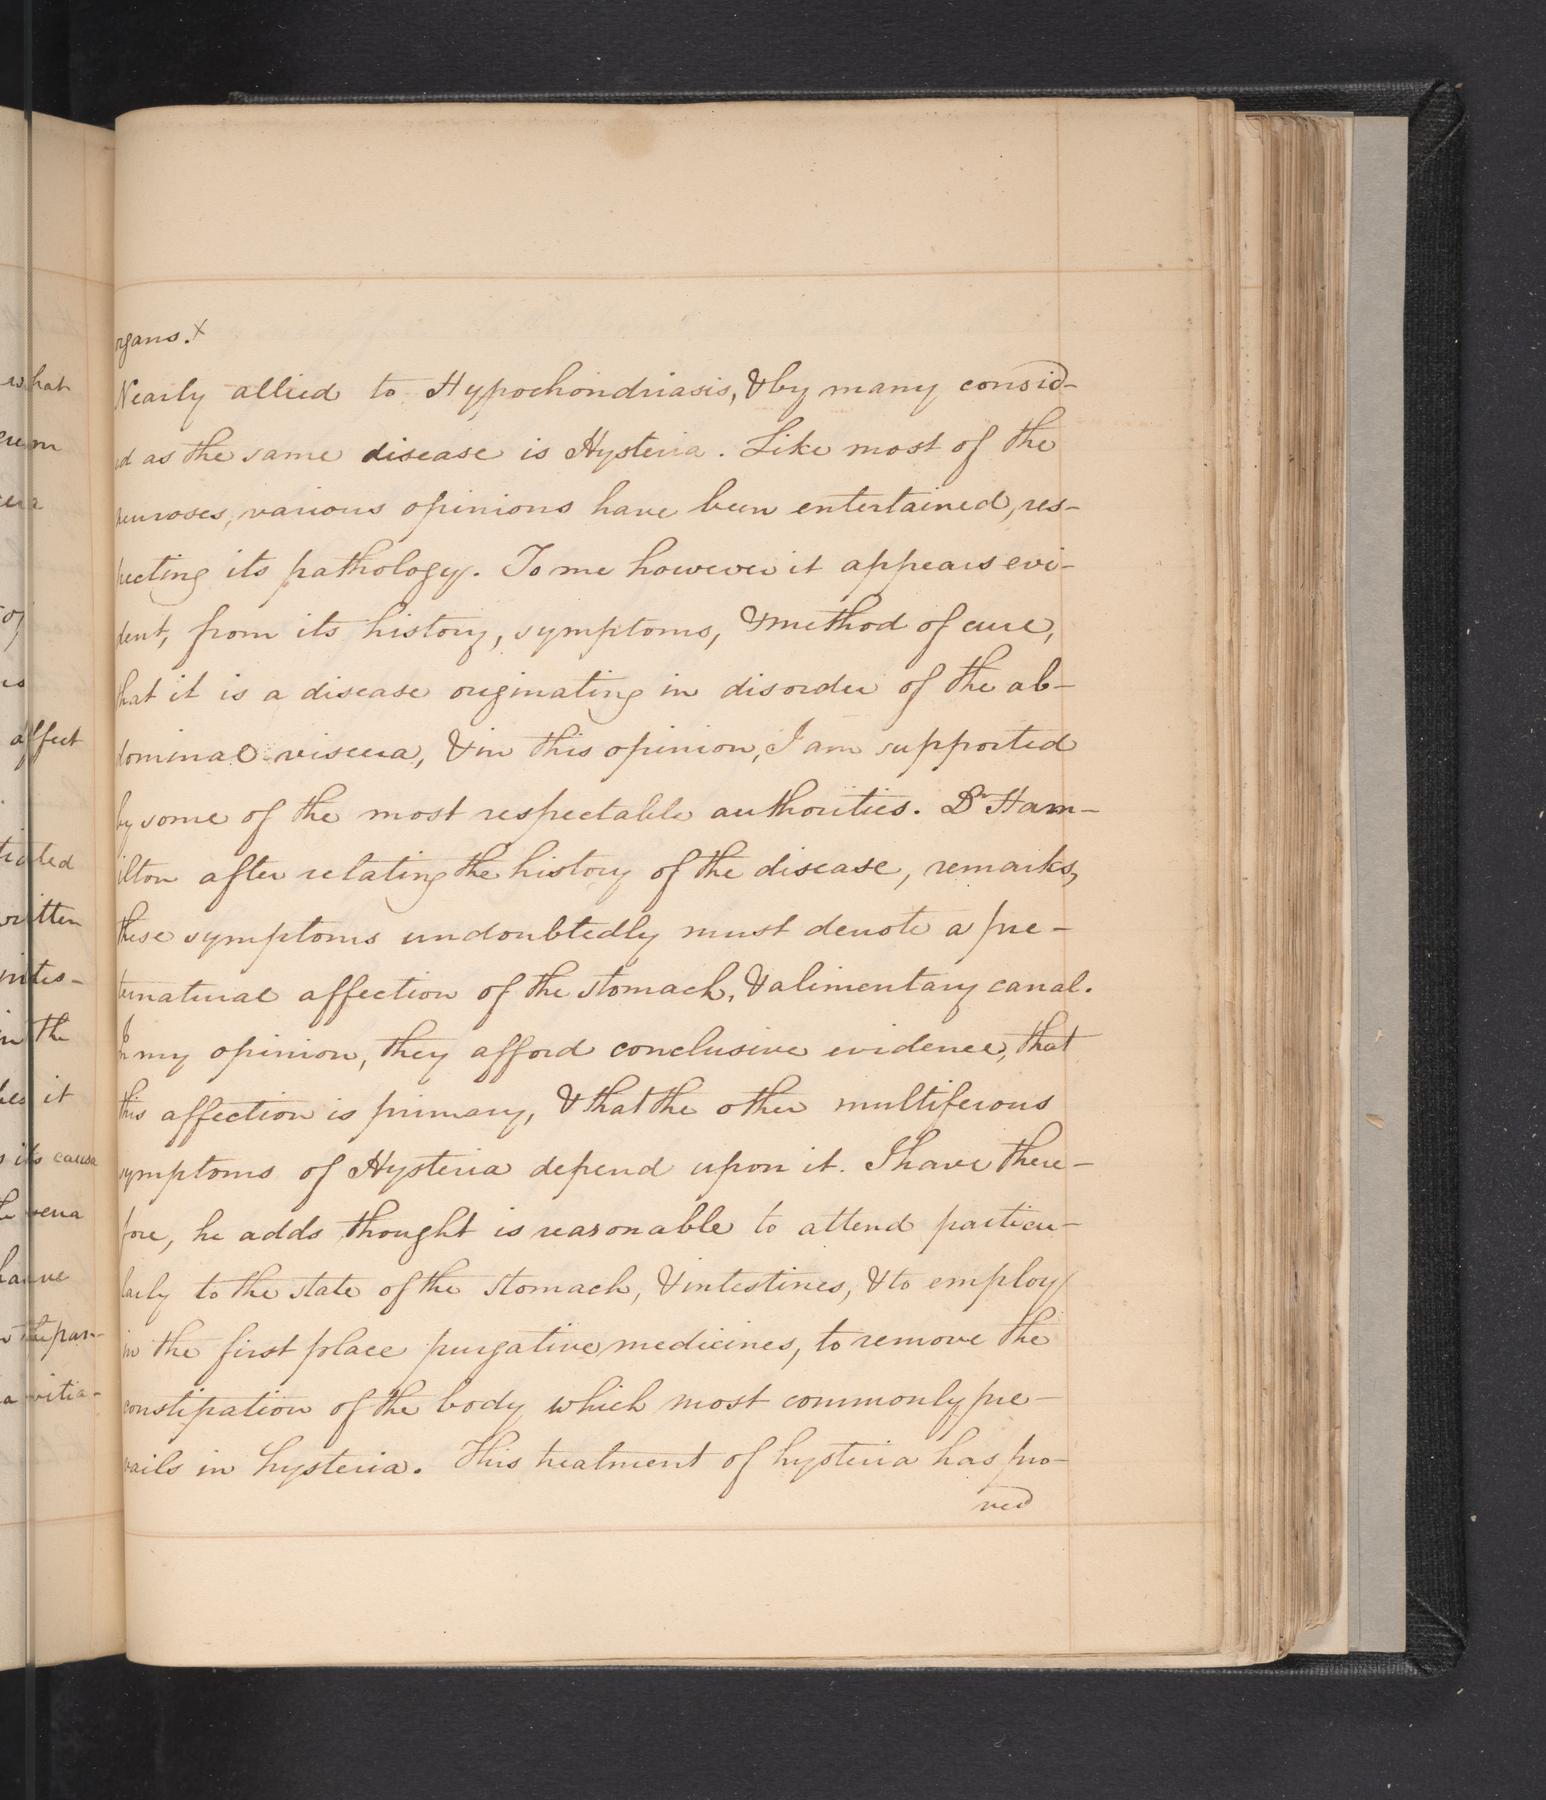 what
affect
written
in the
it
its cause
vena
rgans.x
Nearly allied to Hypochondriasis, & by many consid-
ed as the same disease is Hysteria. Like most of the
neuroses, various opinions have been entertained, res-
pecting its pathology. To me however it appears evi-
dent, from its history, symptoms, & method of cure,
that it is a disease originating in disorder of the ab-
dominal viscera, & in this opinion, I am supported
by some of the most respectable authorities. Dr Ham-
ilton after relating the history of the disease, remarks,
these symptoms undoubtedly must denote a pre-
ternatural affection of the stomach, & alimentary canal.
In my opinion, they afford conclusive evidence, that
this affection is primary, & that the other multiferous
symptoms of Hysteria depend upon it. I have there-
fore, he adds thought is reasonable to attend particu-
larly to the state of the stomach, & intestines, & to employ
in the first place purgative medicines, to remove the
constipation of the body which most commonly pre-
vails in hysteria. This treatment of hysteria has pro-
ved